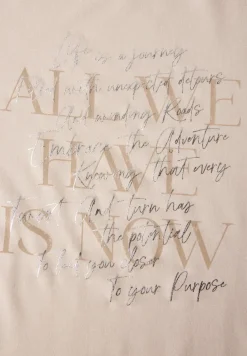 Life is a journey
filled with unexpected detours
and winding Roads
ALL WE
Embrace the Adventure
Knowing that every
HAVE
turn has
the potential
IS NOW
to lead you closer
to your Purpose